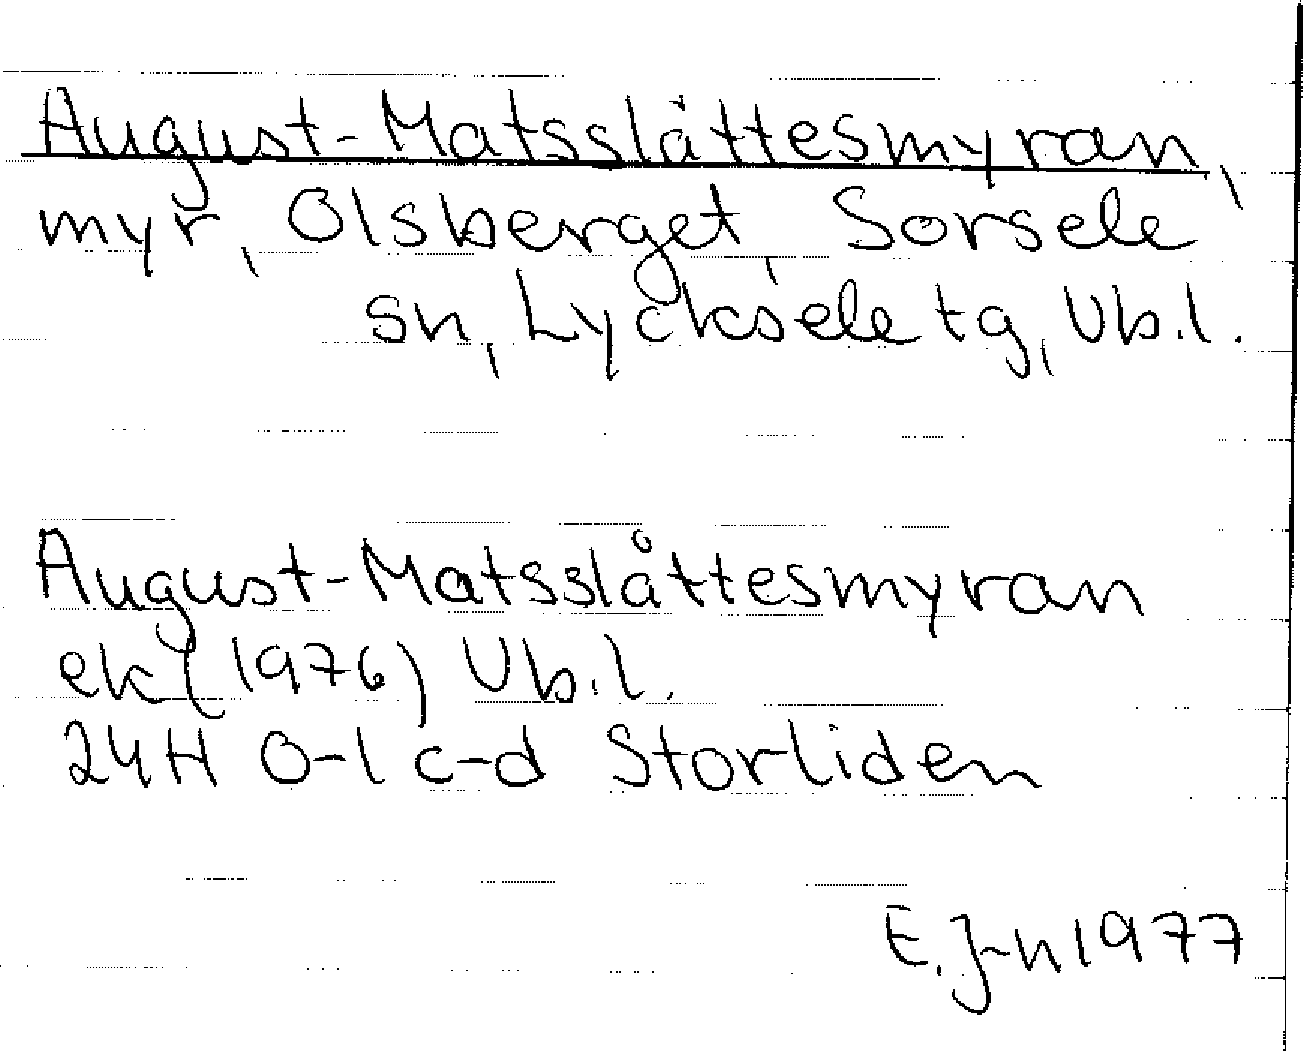 August-Matsslåttesmyran,
myr, Olsberget, Sorsele
sn, Lycksele tg, Vb.l.
August-Matsslåttesmyran
ek (1976) Vb.l.
24H 0-1 c-d Storliden
E. J-n 1977